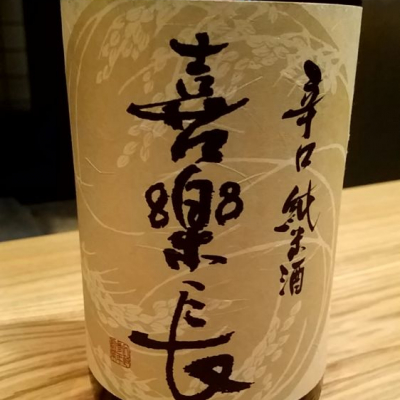 辛口 純米酒
喜樂長